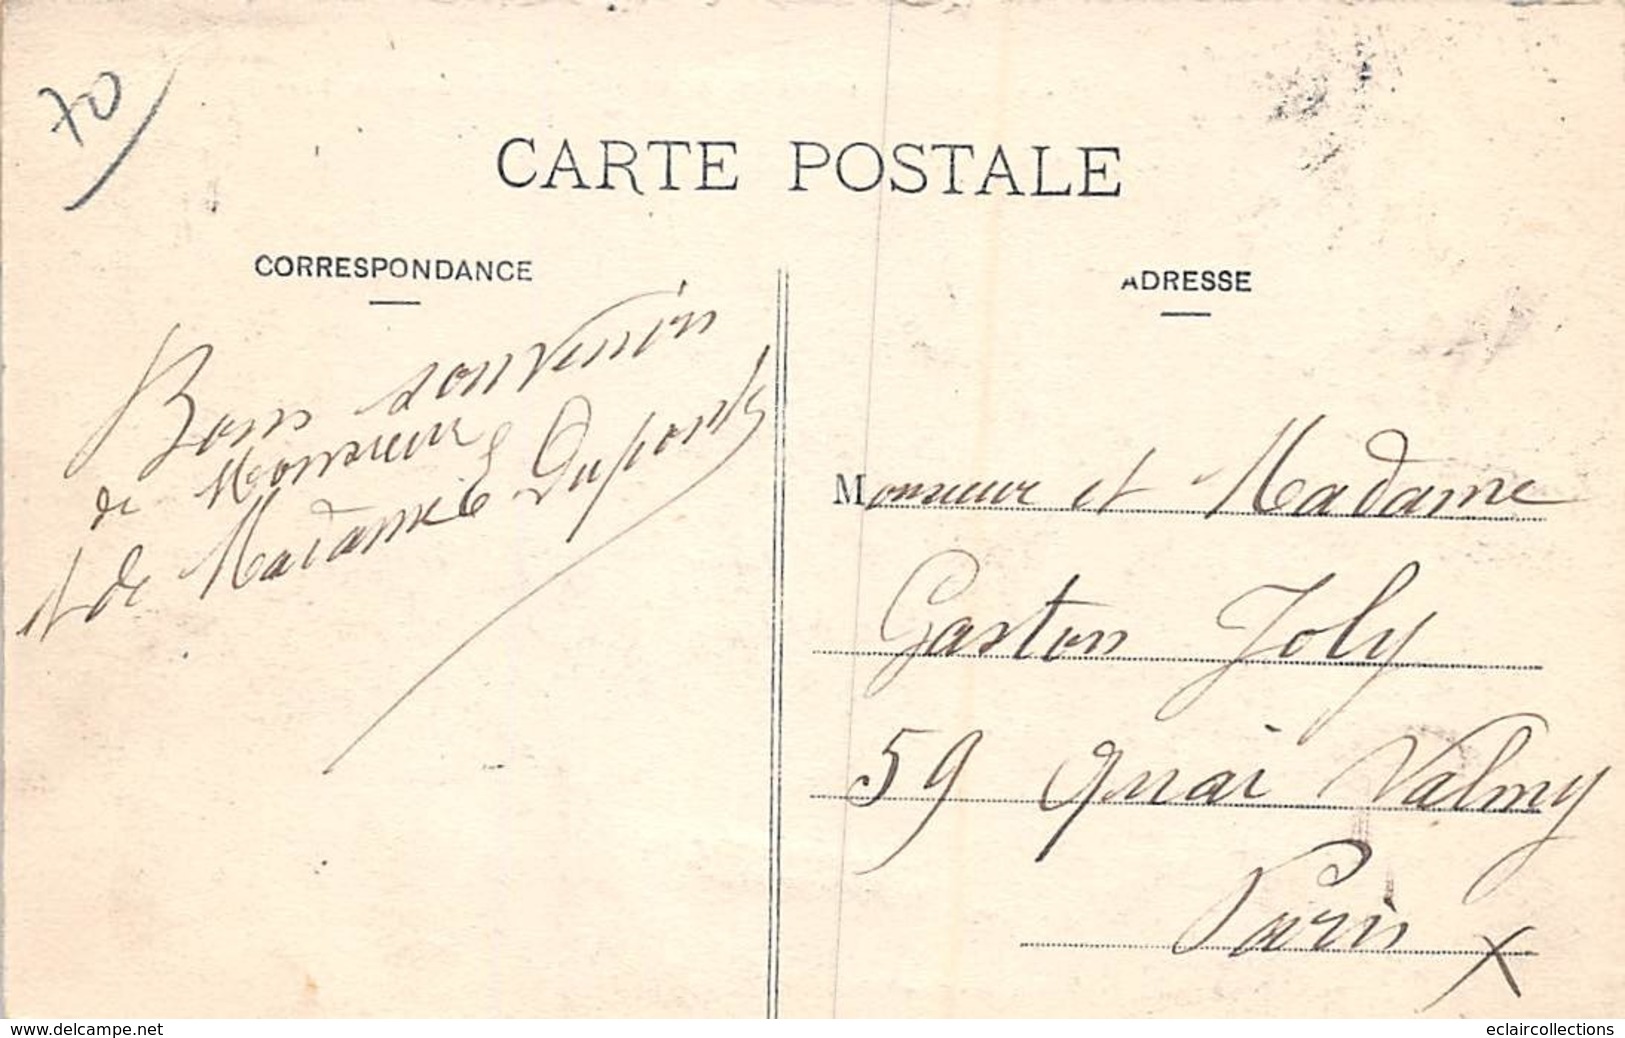 70
CARTE POSTALE
CORRESPONDANCE
Bons souvenirs
de Monsieur
et de Madame Dupont
ADRESSE
Monsieur et Madame
Gaston Joly
59 Quai Valmy
Paris X
www.delcampe.net
eclaircollections